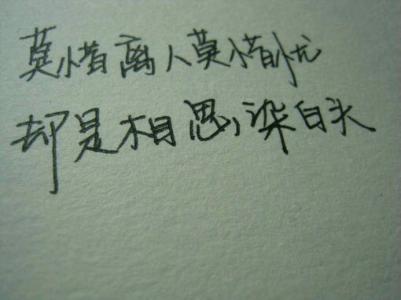 莫惜离人莫惜忧
却是相思染白头